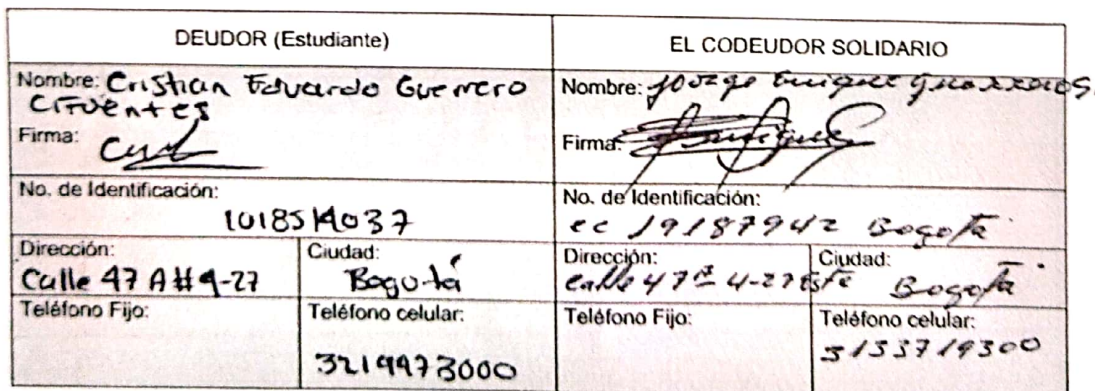 DEUDOR (Estudiante)
EL CODEUDOR SOLIDARIO
Nombre: Cristian Eduardo Guerrero
Cifuentes
Firma:
Nombre: Jorge Enrique
Firma:
No. de Identificación:
No. de Identificación:
cc 19187942 Bogotá
Dirección:
Calle 47 A #
Ciudad:
Bogotá
Dirección:
Calle 47ª 4-27 Este
Ciudad:
Bogotá
Teléfono Fijo:
Teléfono celular:
Teléfono Fijo:
Teléfono celular:
3133719300